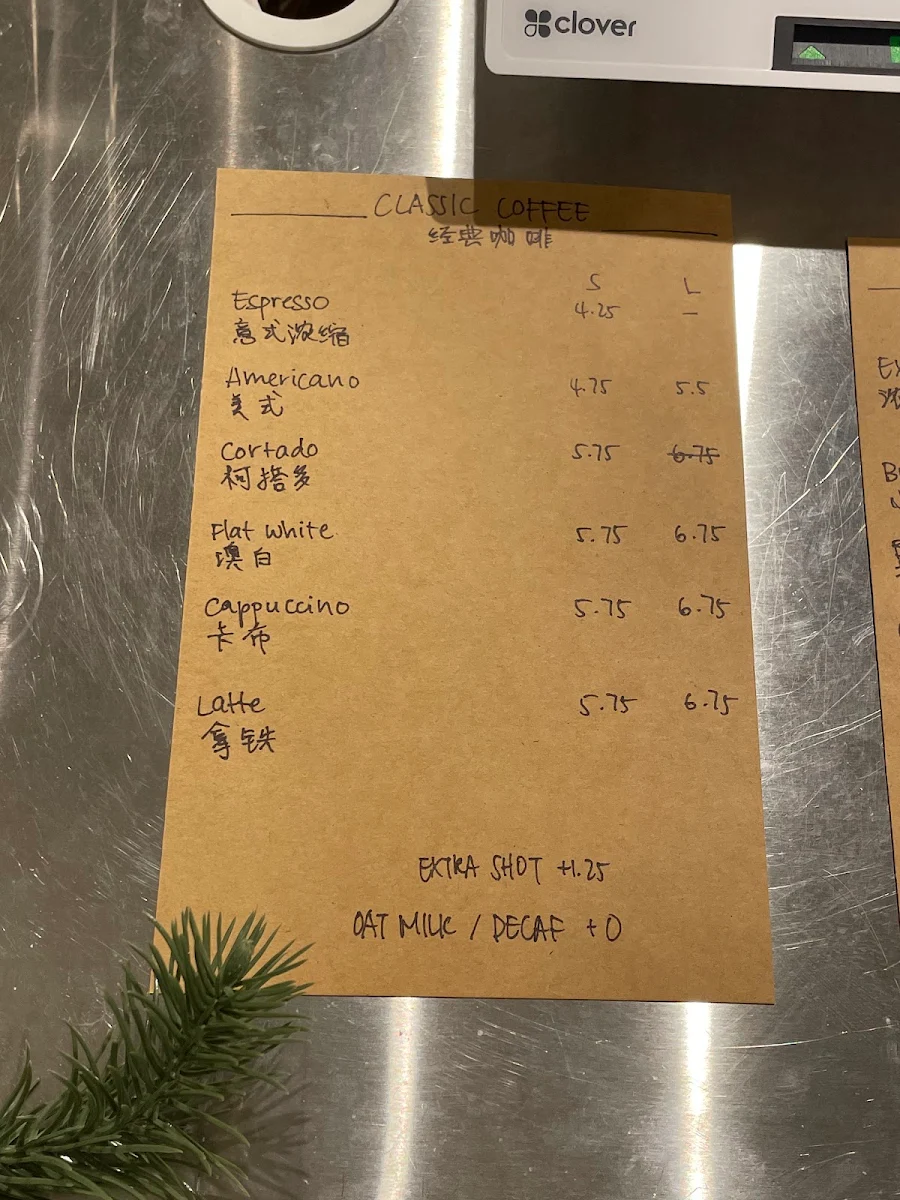 clover
CLASSIC COFFEE
经典咖啡
S L
Espresso 4.25 –
意式浓缩
Americano 4.75 5.5
美式
Cortado 5.75 6.75
柯搭多
Flat white 5.75 6.75
澳白
Cappuccino 5.75 6.75
卡布
Latte 5.75 6.75
拿铁
EXTRA SHOT +1.25
OAT MILK / DECAF +0